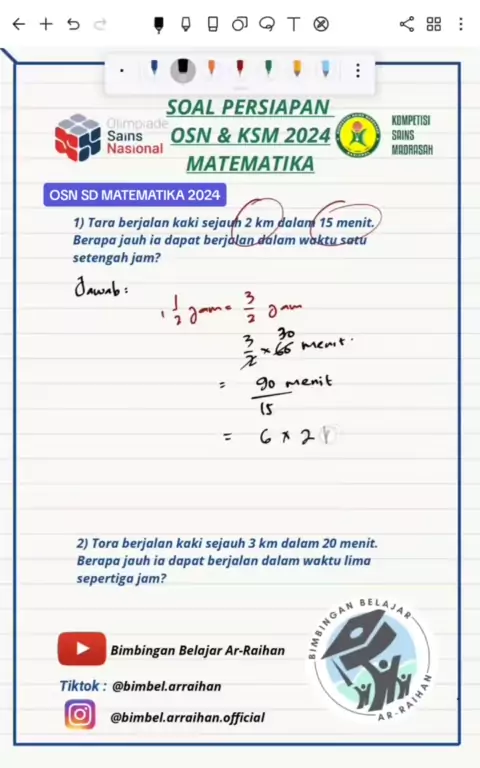 T
Olimpiade
Sains
Nasional
SOAL PERSIAPAN
OSN & KSM 2024
MATEMATIKA
KOMPETISI
SAINS
MADRASAH
OSN SD MATEMATIKA 2024
1) Tara berjalan kaki sejauh 2 km dalam 15 menit.
Berapa jauh ia dapat berjalan dalam waktu satu
setengah jam?
Jawab :
1 1/2 jam = 3/2 jam
30
3/2 × 60 menit.
= 90 menit
15
= 6 × 2
2) Tora berjalan kaki sejauh 3 km dalam 20 menit.
Berapa jauh ia dapat berjalan dalam waktu lima
sepertiga jam?
Bimbingan Belajar Ar-Raihan
Tiktok : @bimbel.arraihan
@bimbel.arraihan.official
BIMBINGAN BELAJAR
AR-RAIHAN